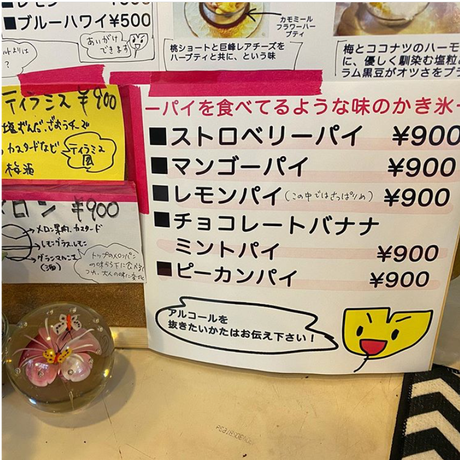 ■レモン ¥500
■ブルーハワイ¥500
あいがけできます
カモミール
フラワーハー
ブティ
桃ショートと巨峰レアチーズを
ハーブティと共に、という味
梅とココナツのハーモ
に、優しく馴染む塩粒と
ラム黒豆がオツさをプラ
ティラミス ¥900
カスタードなど
ティラミス
風
梅酒
メロン ¥900
メロン果肉、カスタード
ーパイを食べてるような味のかき氷ー
■ストロベリーパイ ¥900
■マンゴーパイ ¥900
■レモンパイ(この中ではさっぱりめ) ¥900
■チョコレートバナナ
ミントパイ ¥900
■ピーカンパイ ¥900
アルコールを
抜きたいかたはお伝え下さい！